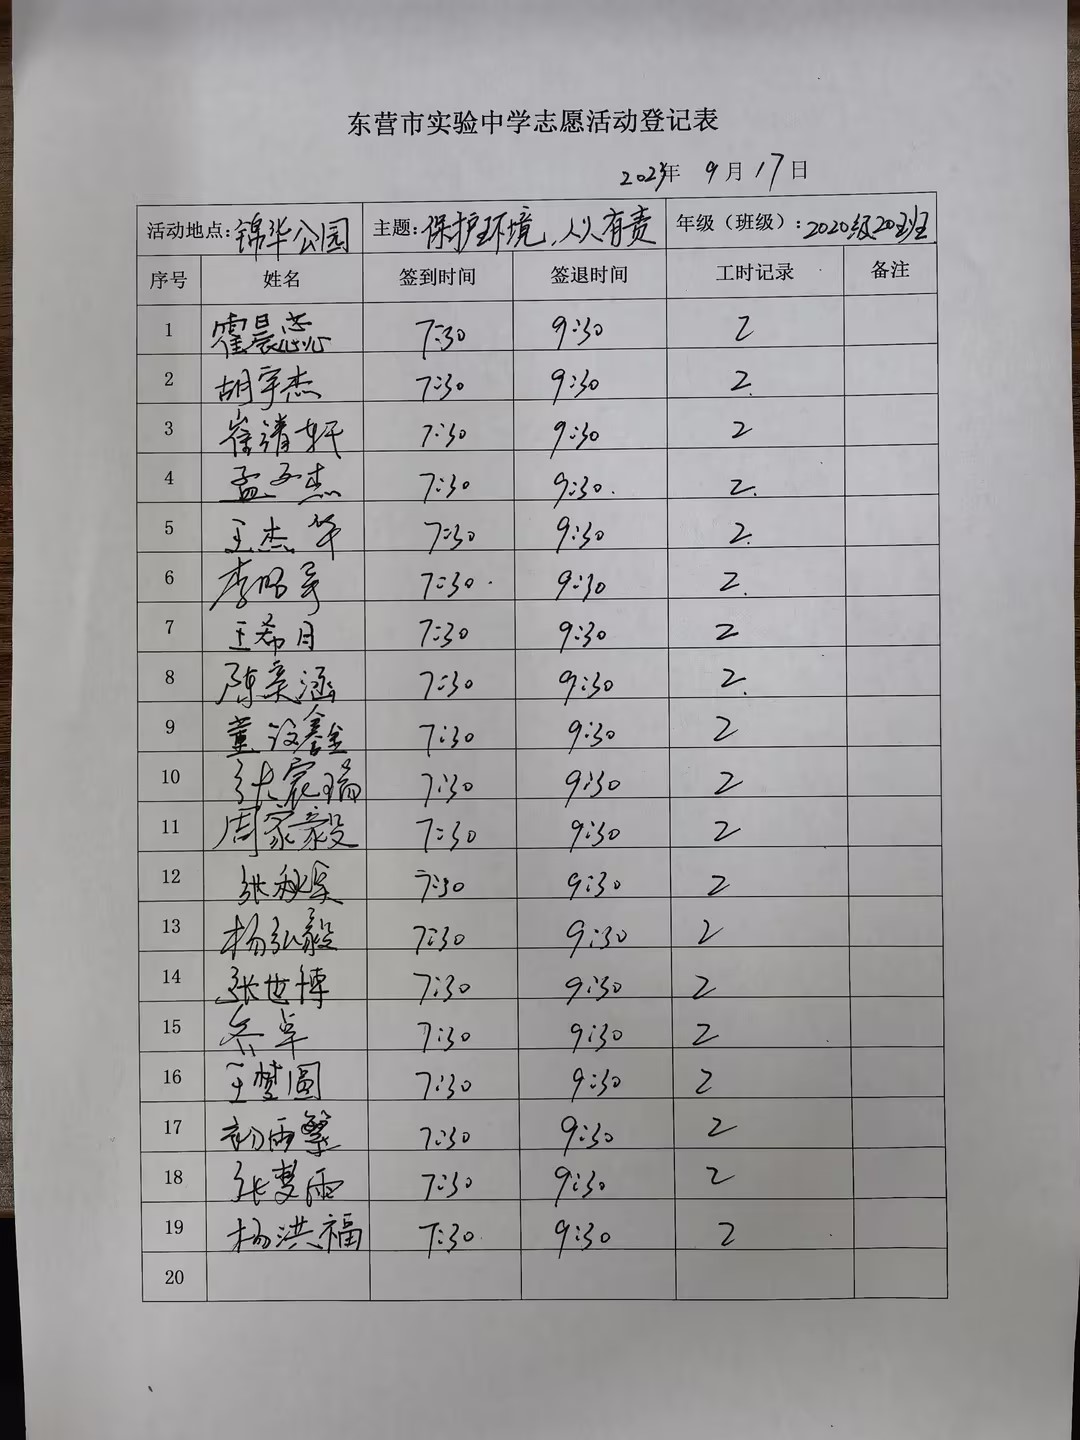 东营市实验中学志愿活动登记表
2023年 9月17日
活动地点:锦华公园 主题:保护环境,人人有责 年级(班级):2020级20班
序号 姓名 签到时间 签退时间 工时记录 备注
1 霍晨蕊 7:30 9:30 2
2 胡宇杰 7:30 9:30 2
3 崔清轩 7:30 9:30 2
4 孟子杰 7:30 9:30 2
5 王杰 7:30 9:30 2
6 李 7:30 9:30 2
7 王希月 7:30 9:30 2
8 陈奕涵 7:30 9:30 2
9 董 鑫 7:30 9:30 2
10 张宸瑞 7:30 9:30 2
11 周家毅 7:30 9:30 2
12 张秋 7:30 9:30 2
13 杨弘毅 7:30 9:30 2
14 张世博 7:30 9:30 2
15 卓 7:30 9:30 2
16 王梦圆 7:30 9:30 2
17 雨繁 7:30 9:30 2
18 张梦雨 7:30 9:30 2
19 杨洪福 7:30 9:30 2
20